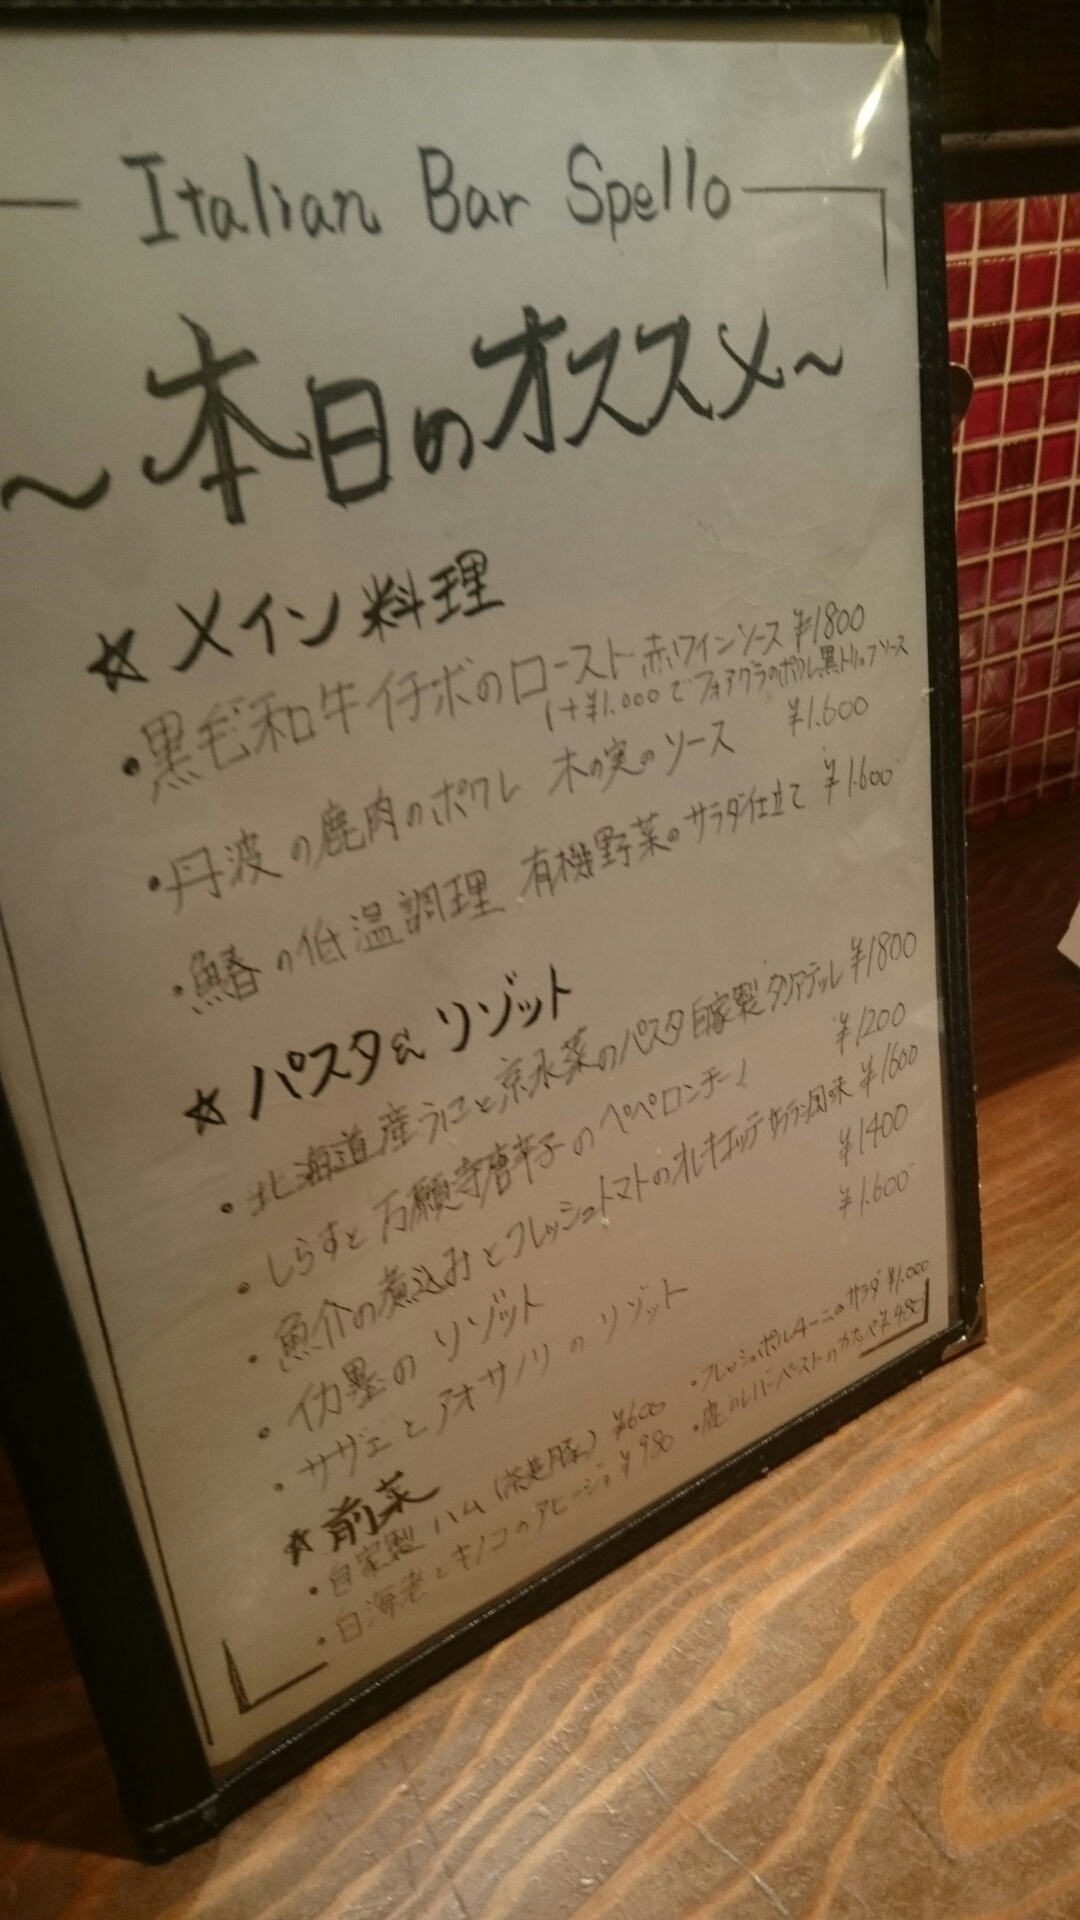 Italian Bar Spello
～本日のオススメ～
☆メイン料理
・黒毛和牛イチボのロースト 赤ワインソース ¥1800
(+¥1.000でフォアグラのポワレ黒トリュフソース
・丹波の鹿肉のポワレ 木の実のソース ¥1.600
・鰆の低温調理 有機野菜のサラダ仕立て ¥1.600
☆パスタ& リゾット
・北海道産うにと京水菜のパスタ自家製タリアテッレ ¥1800
・しらすと万願寺唐辛子のペペロンチーノ ¥1200
・魚介の煮込みとフレッシュトマトのオレキエッテ サフラン風味 ¥1600
・イカ墨の リゾット ¥1400
・サザエとアオサノリのリゾット ¥1.600
☆前菜
・自家製ハム(茶美豚) ¥600
・白海老とキノコのアヒージョ ¥980
・フレッシュポルチーニのサラダ ¥1.000
・鹿のレバーペーストのカナッペ ¥480